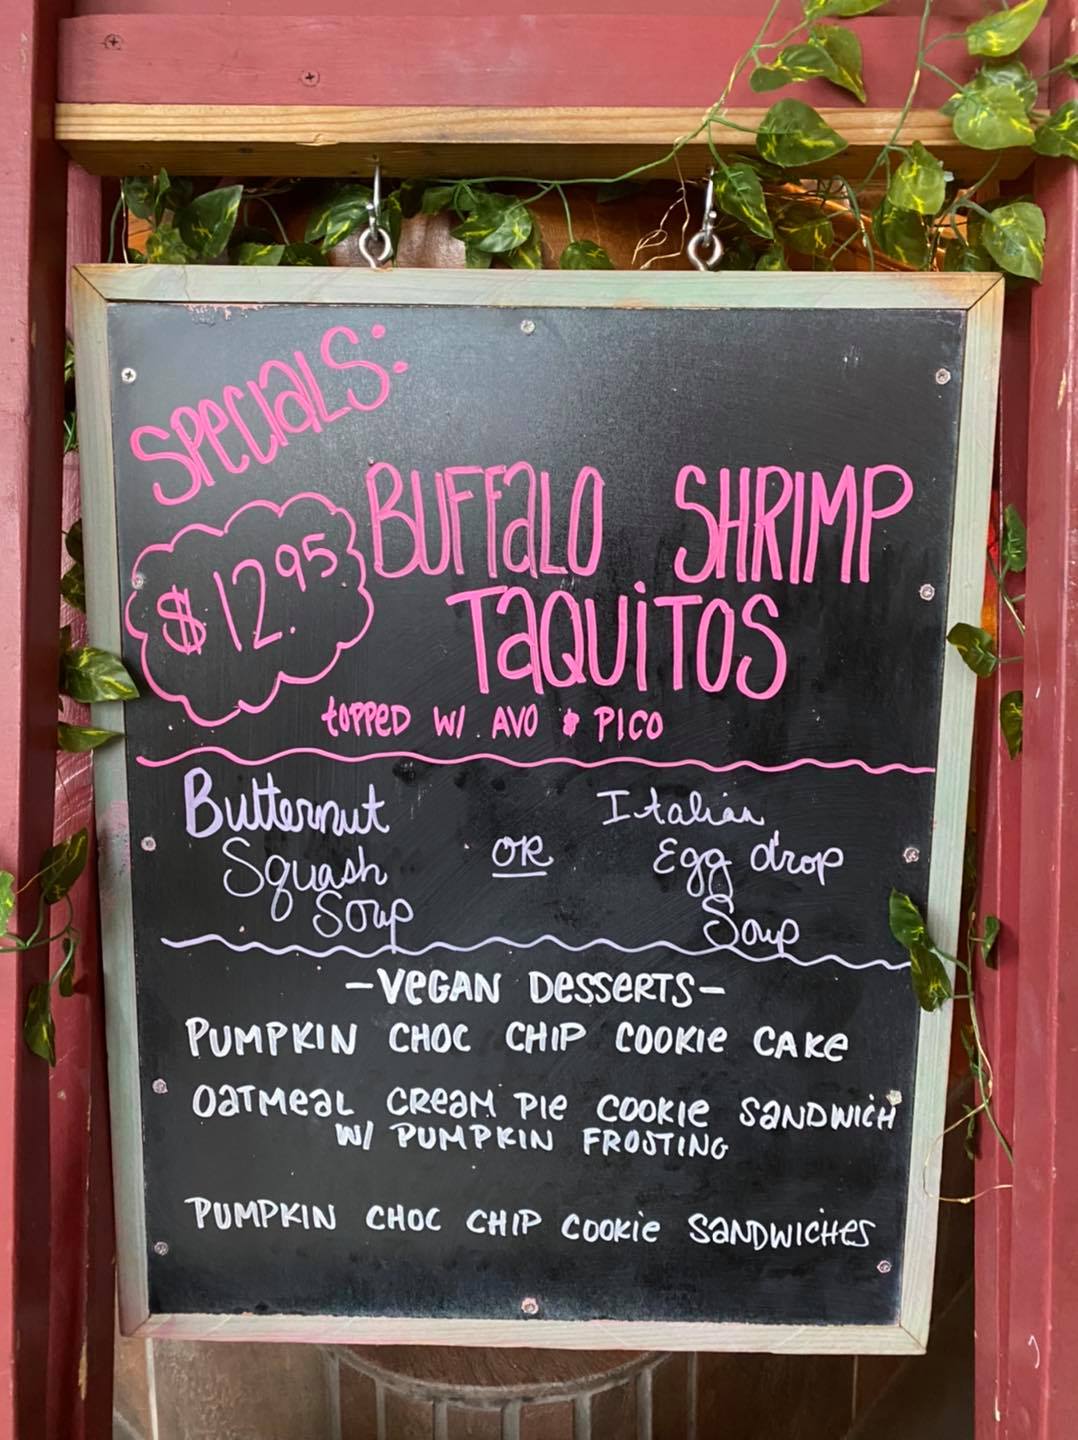 SPECIALS:
$12.95
BUFFALO SHRIMP
TAQUITOS
TOPPED W/ AVO & PICO
Butternut
Squash
Soup
OR
Italian
Egg drop
Soup
-VEGAN DESSERTS-
PUMPKIN CHOC CHIP COOKIE CAKE
OATMEAL CREAM PIE COOKIE SANDWICH
W/ PUMPKIN FROSTING
PUMPKIN CHOC CHIP COOKIE SANDWICHES